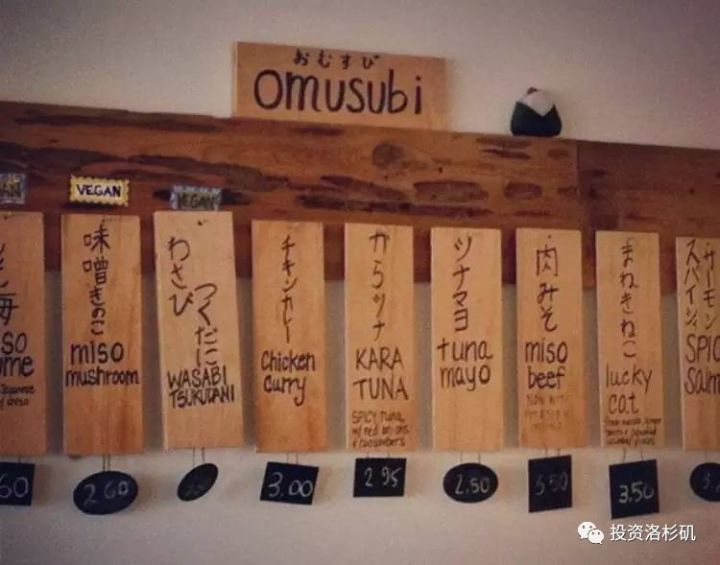 おむすび
omusubi
VEGAN
VEGAN
味噌きのこ
miso
mushroom
2.60
わさび
つくだに
WASABI
TSUKUDANI
チキンカレー
Chicken
curry
3.00
からツナ
KARA
TUNA
SPICY tuna
w/ red onions
+ cucumbers
2.95
ツナマヨ
tuna
mayo
2.50
肉みそ
miso
beef
3.50
まねきねこ
lucky
cat
3.50
サーモン
スパイシィ
SPIC
Salm
投资洛杉矶